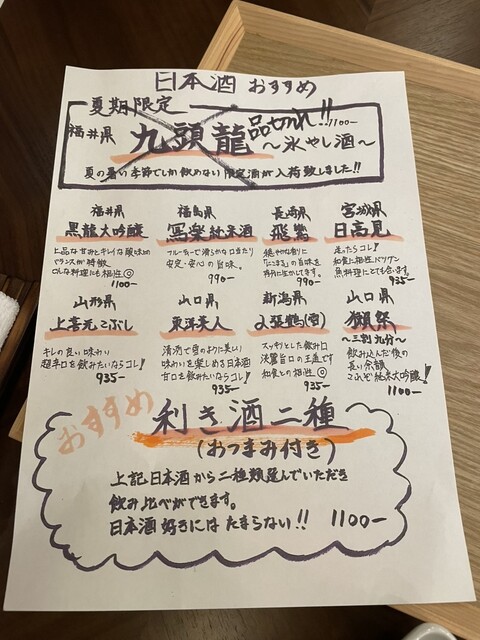 日本酒 おすすめ
夏期限定
福井県 九頭龍 品切れ!! 1100-
～氷やし酒～
夏の暑い季節でしか飲めない限定酒が入荷致しました!!
福井県
黒龍大吟醸
上品な甘みとキレイな酸味の
バランスが特徴
どんな料理にも相性◎
1100-
福島県
寫楽純米酒
フルーティーで滑らかな口当たり
安定・安心の旨味。
990-
長崎県
飛鸞
穏やかな香りに
「にこまる」の旨味を
存分に生かしてます。
990-
宮城県
日高見
迷ったらコレ!
和食に相性バツグン
魚料理にとても合います。
935-
山形県
上喜元こぶし
キレの良い味わい
超辛口を飲みたいならコレ!
935-
山口県
東洋美人
清流で雪のように美しい
味わいを楽しめる日本酒
甘口を飲みたいならコレ!
935-
新潟県
〆張鶴(雪)
スッキリとした飲み口
淡麗旨口の王道です
和食との相性◎
935-
山口県
獺祭
～三割九分～
飲み込んだ後の
長い余韻
これぞ純米大吟醸!
1100-
おすすめ
利き酒二種
(おつまみ付き)
上記日本酒から二種類選んでいただき
飲み比べができます。
日本酒好きにはたまらない!! 1100-